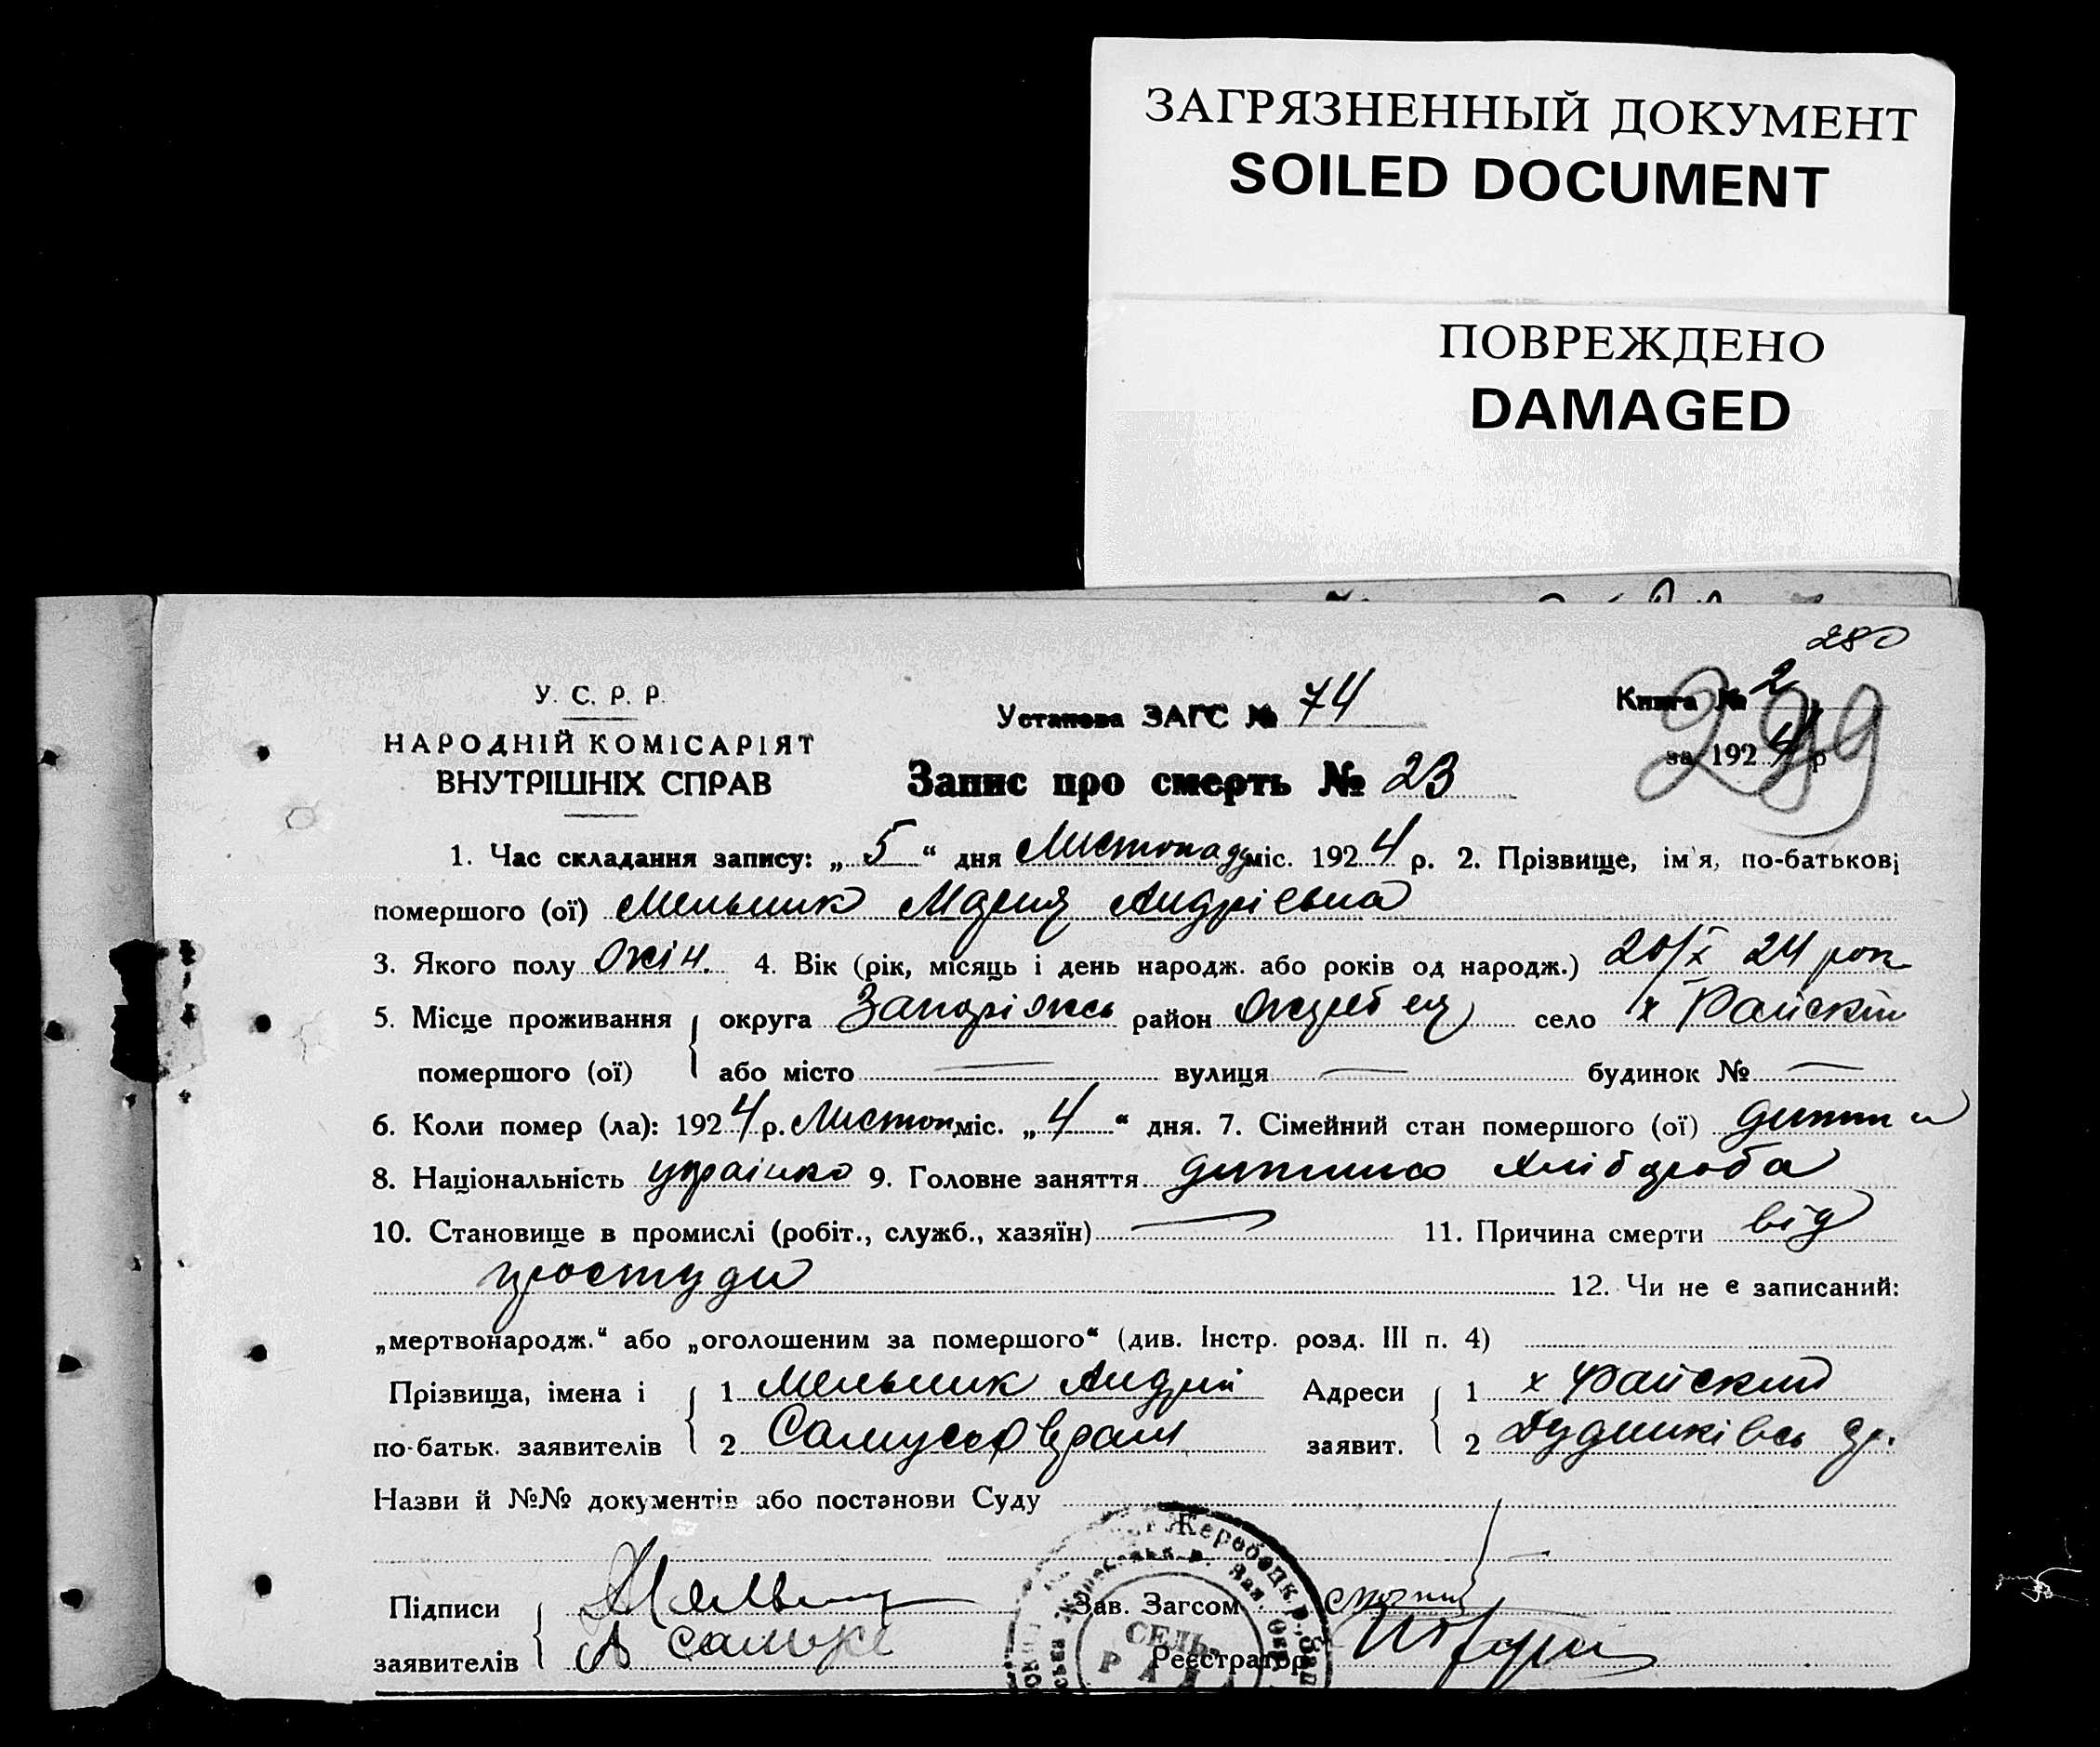 ЗАГРЯЗНЕННЫЙ ДОКУМЕНТ
SOILED DOCUMENT
ПОВРЕЖДЕНО
DAMAGED
280
У. С. Р. Р.
НАРОДНІЙ КОМІСАРІЯТ
ВНУТРІШНІХ СПРАВ
Установа ЗАГС № 74
Книга № 2
за 1924 р
Запис про смерть № 23
1. Час складання запису: „ 5 “ дня Листопаду міс. 1924 р. 2. Прізвище, ім'я, по-батькові
помершого (ої) Мельник Мария Андріевна
3. Якого полу жін. 4. Вік (рік, місяць і день народж. або років од народж.) 20/X 24 рок
5. Місце проживання округа Запоріжсь район село х Райский
помершого (ої) або місто — вулиця — будинок № —
6. Коли помер (ла): 1924 р. Листоп міс. „ 4 “ дня. 7. Сімейний стан помершого (ої)
8. Національність украінка 9. Головне заняття дитина хлібороба
10. Становище в промислі (робіт., служб., хазяїн) — 11. Причина смерти від
простуди 12. Чи не є записаний:
„мертвонародж.“ або „оголошеним за помершого“ (див. Інстр. розд. III п. 4)
Прізвища, імена і 1 Мельник Андрій Адреси 1 х Райский
по-батьк. заявителів 2 заявит. 2
Назви й №№ документів або постанови Суду
Жеребецк. р.
Підписи Зав. Загсом
СЕЛЬ
заявителів Реєстратор
РАДА